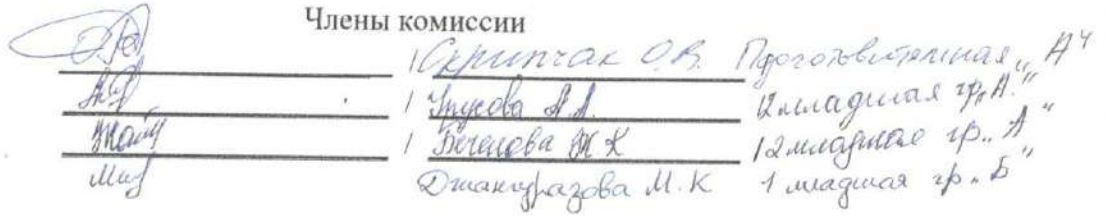 Члены комиссии
/ Скрипчак О.В. Подготовительная „А“
/ Урусова А.А. /2 младшая гр. „А“
/ Бечелова Ж К /2 младшая гр. „А“
М.К 1 младшая гр. „Б“